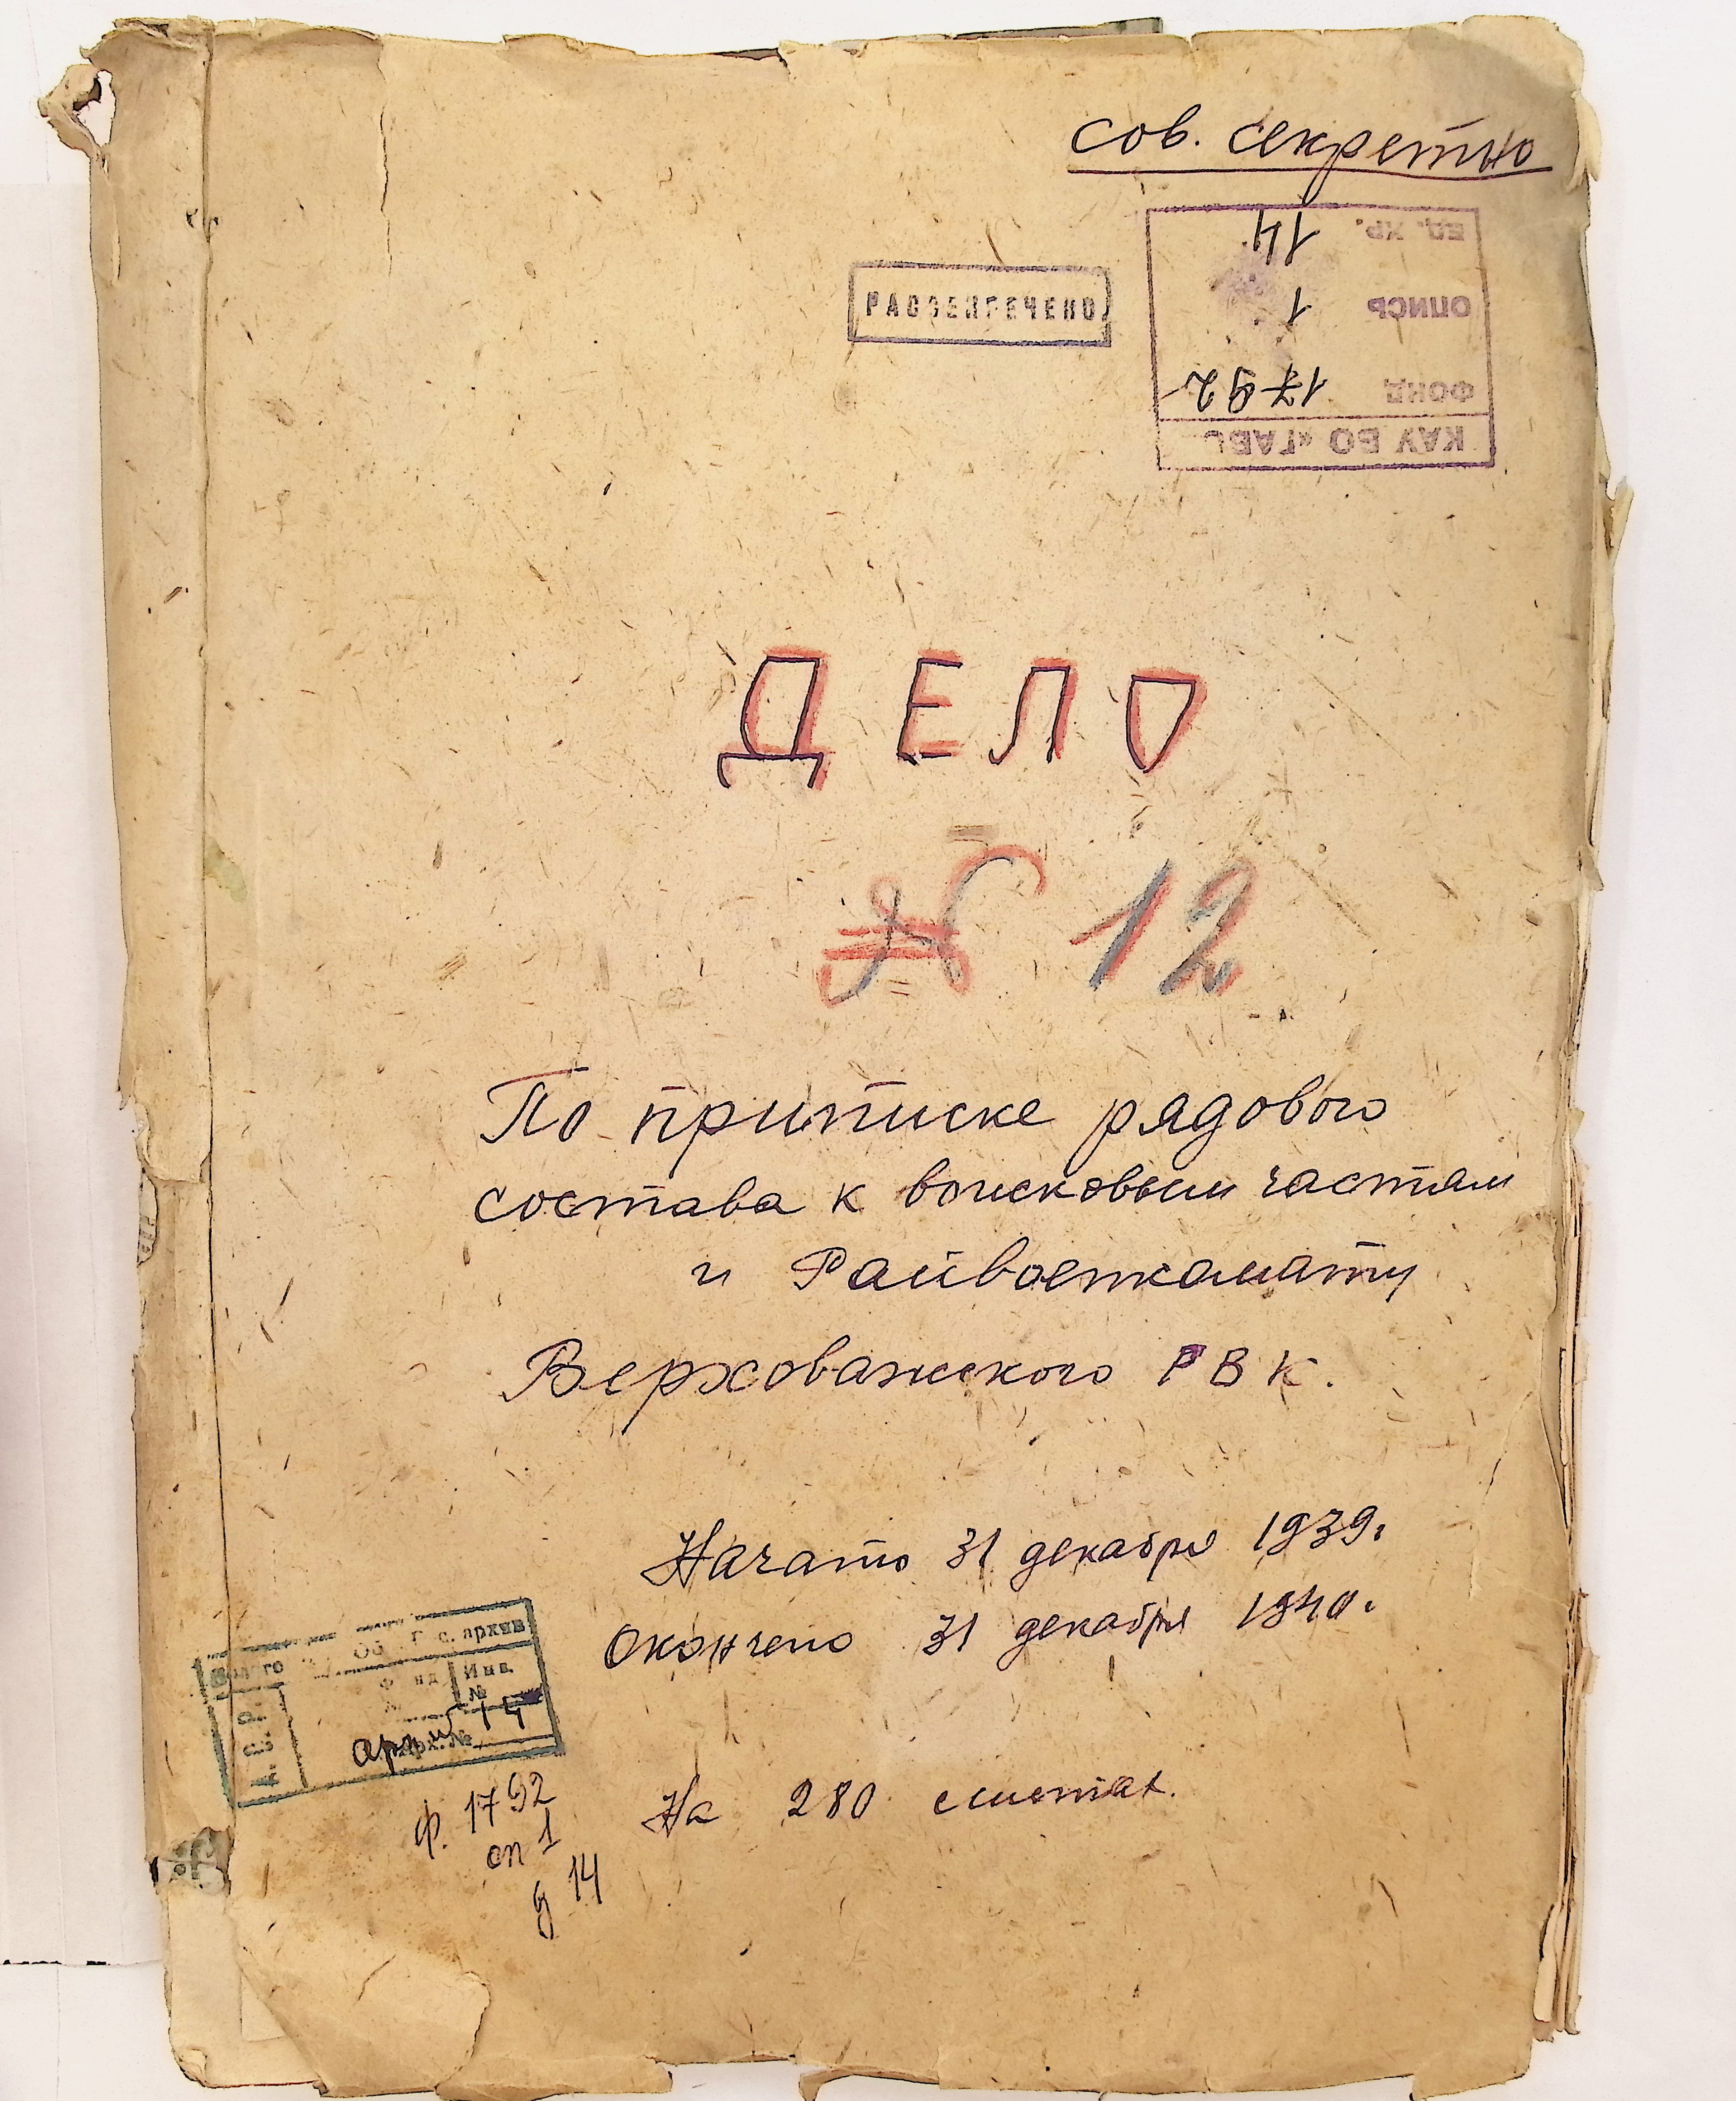 сов. секретно
РАССЕКРЕЧЕНО
КАУ ВО «ГАВО
ФОНД 1792
ОПИСЬ 1
ЕД. ХР. 14
ДЕЛО
№ 12
По приписке рядового
состава к войсковым частям
и Райвоенкомату
Верховажского РВК.
Начато 31 декабря 1939г
Окончено 31 декабря 1940г
На 280 листах.
Об. Г с. архив
Инв.
№
А.О.Р.
арх. № 14
ф. 1792
оп 1
д 14